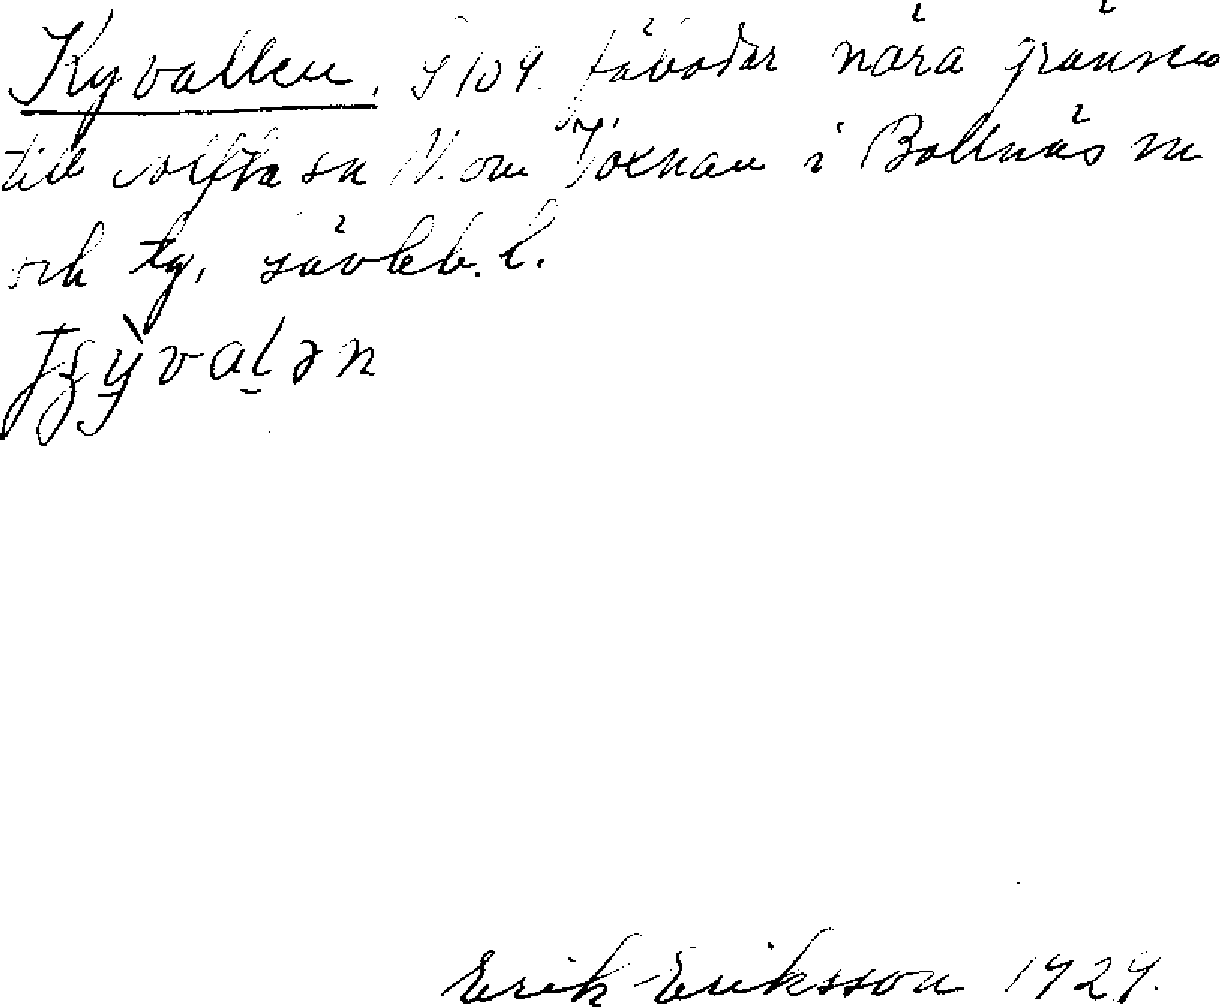 Kyvallen. S 109. fäbodar nära gränsen
till Alfta sn N. om Voxnan i Bollnäs sn
och tg. Gävleb. l.
yvalən
Erik Eriksson 1929.